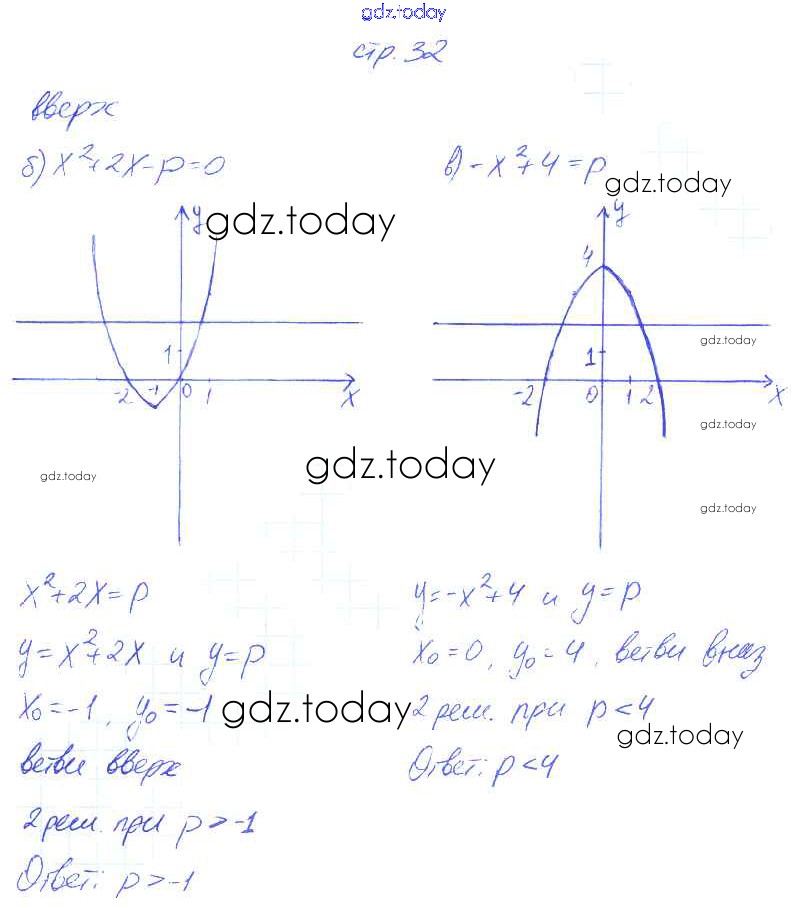 gdz.today
стр. 32
вверх
б) x²+2x-p=0
в) -x²+4=p
gdz.today
y gdz.today
y
4
gdz.today
1
1
-2 -1 0 1 x
-2 0 1 2 x
gdz.today
gdz.today
gdz.today
gdz.today
x²+2x=p
y=x²+2x и y=p
x₀=-1, y₀=-1
ветви вверх
2 реш. при p>-1
Ответ: p>-1
y=-x²+4 и y=p
x₀=0, y₀=4, ветви вниз
gdz.today
2 реш. при p<4
gdz.today
Ответ: p<4